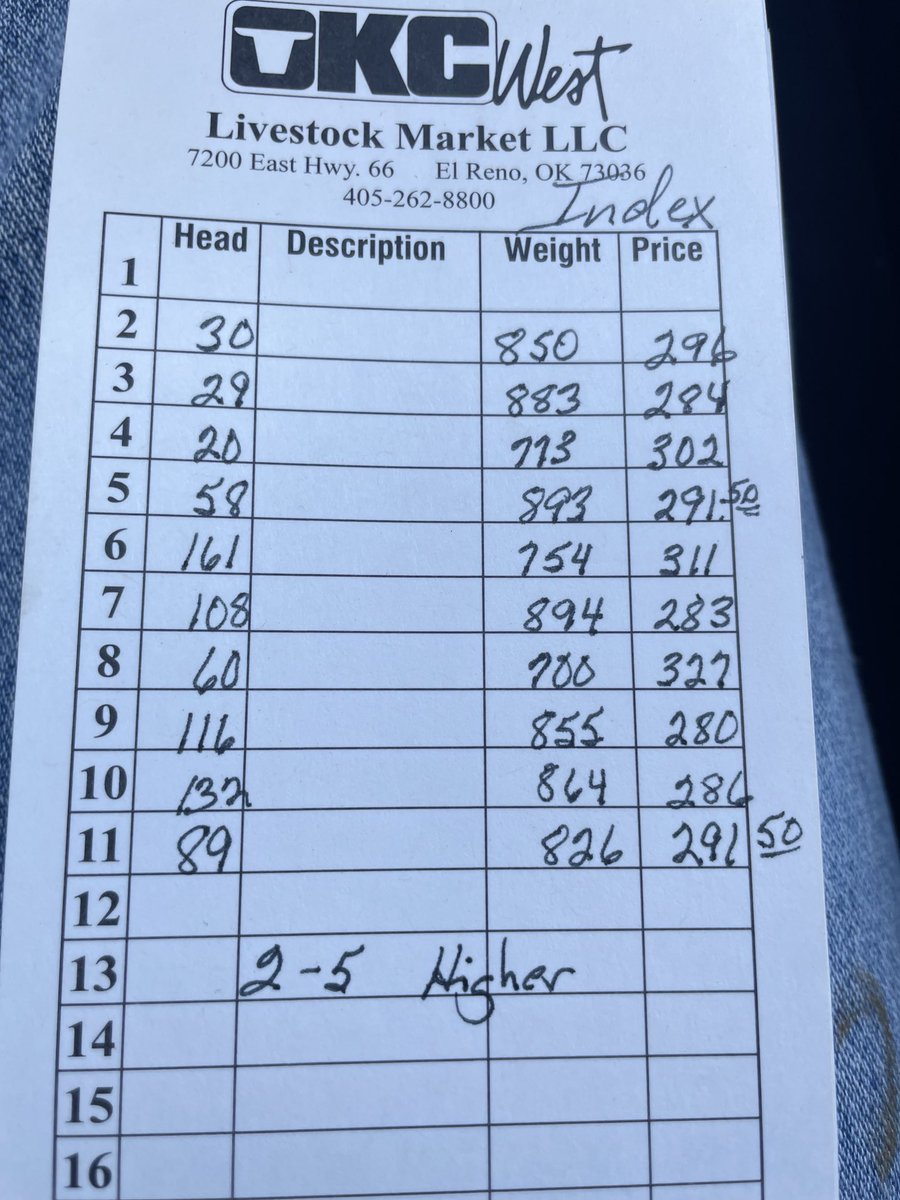 OKC West
Livestock Market LLC
7200 East Hwy. 66 El Reno, OK 73036
405-262-8800
Index
Head Description Weight Price
1
2 30 850 296
3 29 883 284
4 20 773 302
5 58 893 291.50
6 161 754 311
7 108 894 283
8 60 700 327
9 116 855 280
10 132 864 286
11 89 826 291 50
12
13 2-5 Higher
14
15
16